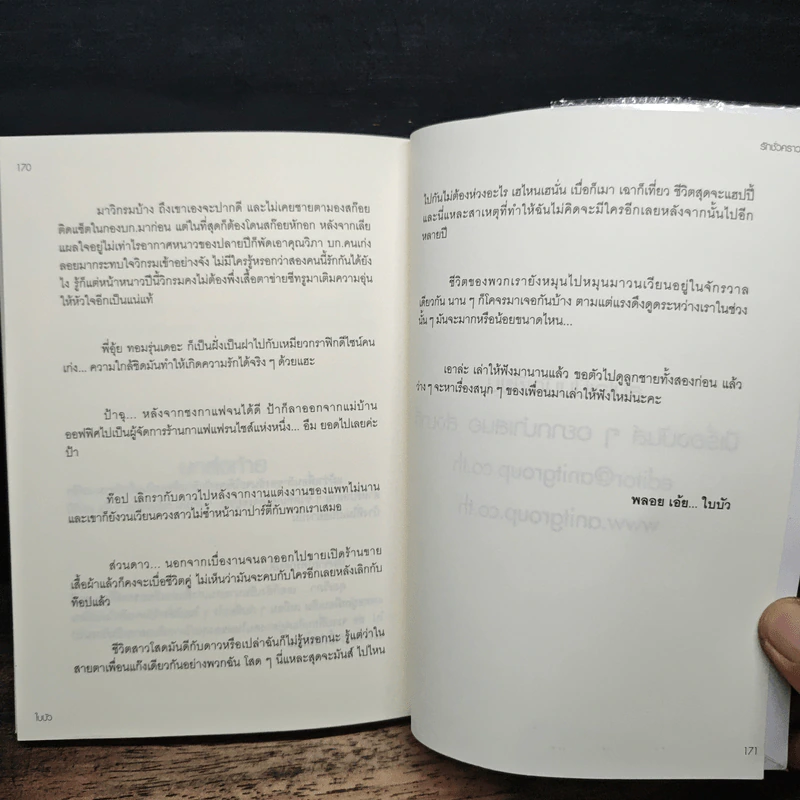 170
มาวิกรมบ้าง ถึงเขาเองจะปากดี และไม่เคยชายตามองสก๊อย
ติดแช็ตในกองบก.มาก่อน แต่ในที่สุดก็ต้องโดนสก๊อยหักอก หลังจากเลีย
แผลใจอยู่ไม่เท่าไรอากาศหนาวของปลายปีก็พัดเอาคุณวิภา บก.คนเก่ง
ลอยมากระทบใจวิกรมเข้าอย่างจัง ไม่มีใครรู้หรอกว่าสองคนนี้รักกันได้ยัง
ไง รู้ก็แต่หน้าหนาวปีนี้วิกรมคงไม่ต้องพึ่งเสื้อตาข่ายซีทรูมาเติมความอุ่น
ให้หัวใจอีกเป็นแน่แท้
พี่อุ้ย ทอมรุ่นเดอะ ก็เป็นฝั่งเป็นฝาไปกับเหมียวกราฟิกดีไซน์คน
เก่ง... ความใกล้ชิดมันทำให้เกิดความรักได้จริง ๆ ด้วยแฮะ
ป้าจุ... หลังจากชงกาแฟจนได้ดี ป้าก็ลาออกจากแม่บ้าน
ออฟฟิศไปเป็นผู้จัดการร้านกาแฟแฟรนไชส์แห่งหนึ่ง... อืม ยอดไปเลยค่ะ
ป้า
ท๊อป เลิกรากับดาวไปหลังจากงานแต่งงานของแพทไม่นาน
และเขาก็ยังวนเวียนควงสาวไม่ซ้ำหน้ามาปาร์ตี้กับพวกเราเสมอ
ส่วนดาว... นอกจากเบื่องานจนลาออกไปขายเปิดร้านขาย
เสื้อผ้าแล้วก็คงจะเบื่อชีวิตคู่ ไม่เห็นว่ามันจะคบกับใครอีกเลยหลังเลิกกับ
ท๊อปแล้ว
ชีวิตสาวโสดมันดีกับดาวหรือเปล่าฉันก็ไม่รู้หรอกนะ รู้แต่ว่าใน
สายตาเพื่อนแก๊งเดียวกันอย่างพวกฉัน โสด ๆ นี่แหละสุดจะมันส์ ไปไหน
ใบบัว
รักชั่วคราว
ไปกันไม่ต้องห่วงอะไร เฮไหนเฮนั่น เบื่อก็เมา เฉาก็เที่ยว ชีวิตสุดจะแฮปปี้
และนี่แหละสาเหตุที่ทำให้ฉันไม่คิดจะมีใครอีกเลยหลังจากนั้นไปอีก
หลายปี
ชีวิตของพวกเรายังหมุนไปหมุนมาวนเวียนอยู่ในจักรวาล
เดียวกัน นาน ๆ ก็โคจรมาเจอกันบ้าง ตามแต่แรงดึงดูดระหว่างเราในช่วง
นั้น ๆ มันจะมากหรือน้อยขนาดไหน...
เอาล่ะ เล่าให้ฟังมานานแล้ว ขอตัวไปดูลูกชายทั้งสองก่อน แล้ว
ว่าง ๆ จะหาเรื่องสนุก ๆ ของเพื่อนมาเล่าให้ฟังใหม่นะคะ
พลอย เอ้ย... ใบบัว
171